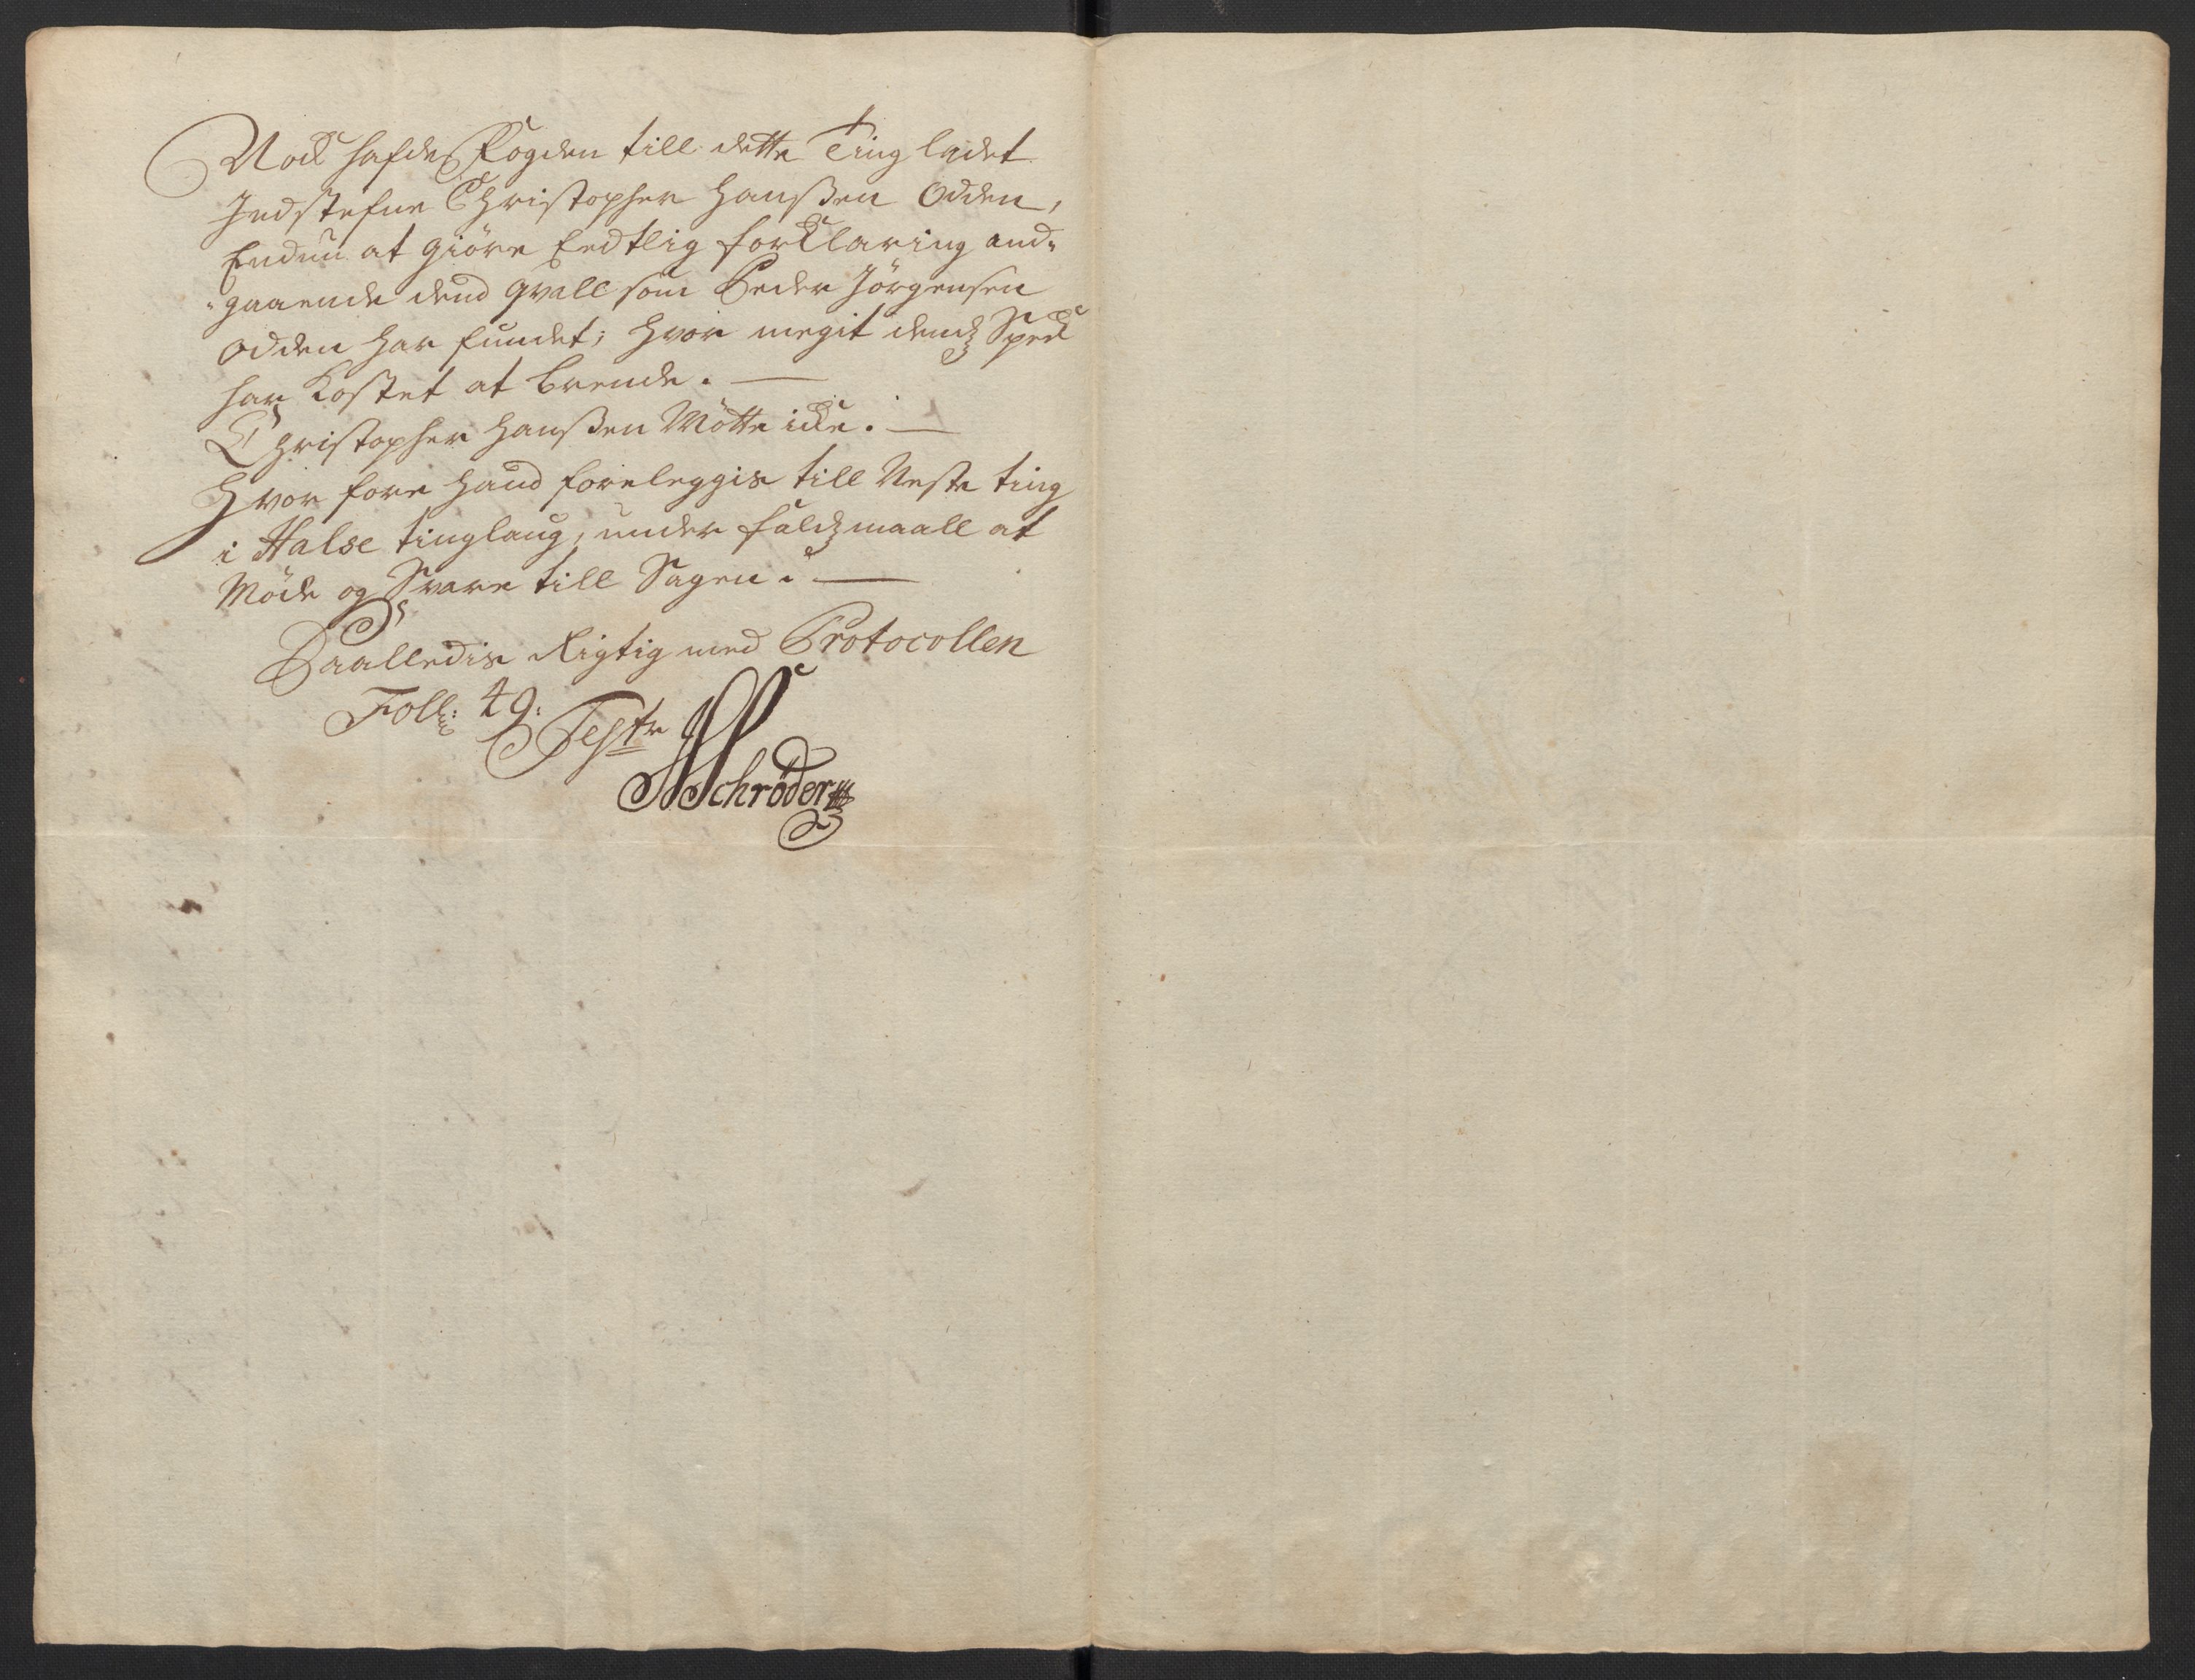 Nock hafde Fogden till dette Ting ladet
Indstefne Christopher Hanßen Odden,
Endnu at giöre Eedtlig forklaring and-
-gaaende dend qvall som Peder Jörgensen
Odden har fundet; hvor megit dends Speck
har kostet at brende. —
Christopher Hanßen Mötte icke. —
Hvor fore hand foreleggis till Neste ting
i Halse tinglaug, under faldsmaall at
Möde og Svare till Sagen. —
Saalledis Rigtig med Protocollen
Foll: 49: Test
Schröder